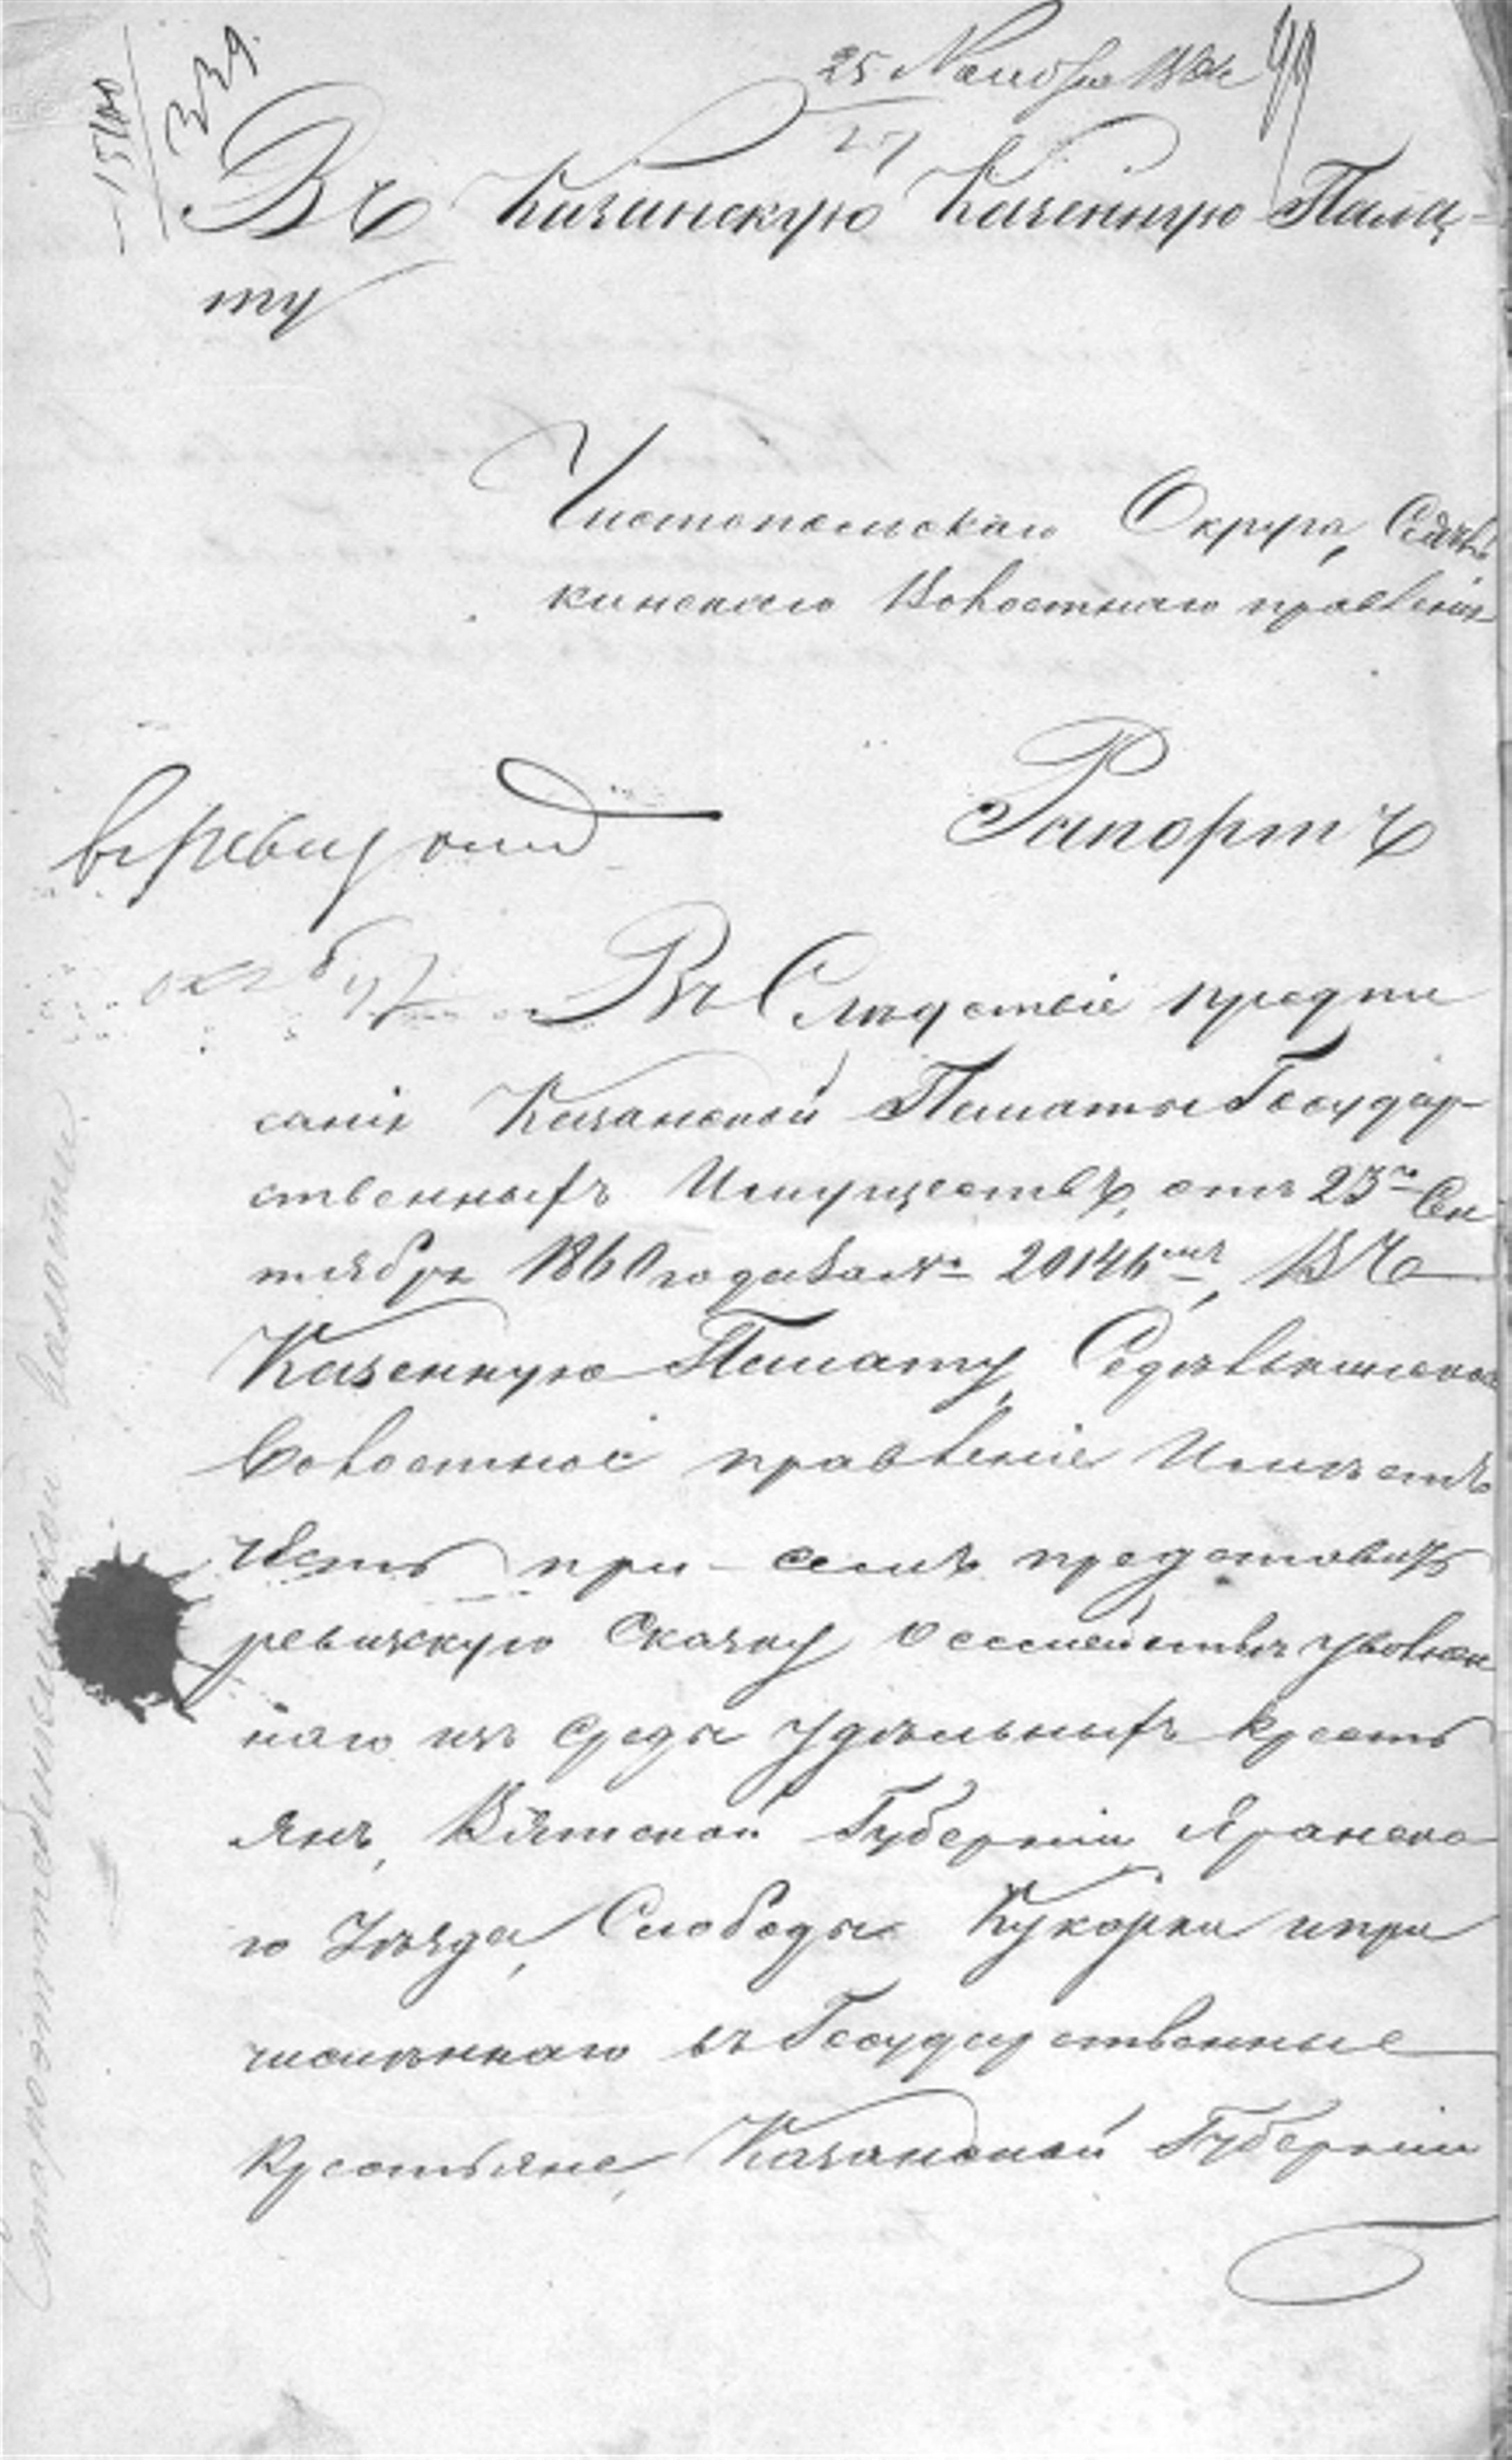 339.
25 Ноября
27
Въ Казанскую Казенную Пала-
ту
Чистопольскаго Округа,
кинскаго Волостнаго правленія
Рапортъ
въ ревиз отд
Въ Следствіе предпи
санія Казанской Палаты Государ-
ственныхъ Имуществъ, отъ 23го Сен
тября 1860 года за № 20146мъ, Въ
Казенную Палату,
Волостное правленіе Имѣетъ
честь при семъ представить
ревизскую Сказку о семействѣ уволен
наго изъ среды Удѣльныхъ крестъ
янъ, Вятской Губерніи Яранска
го Уѣзда, Слободы Кукарки и при
численнаго въ Государственные
Крестьяне, Казанской Губерніи